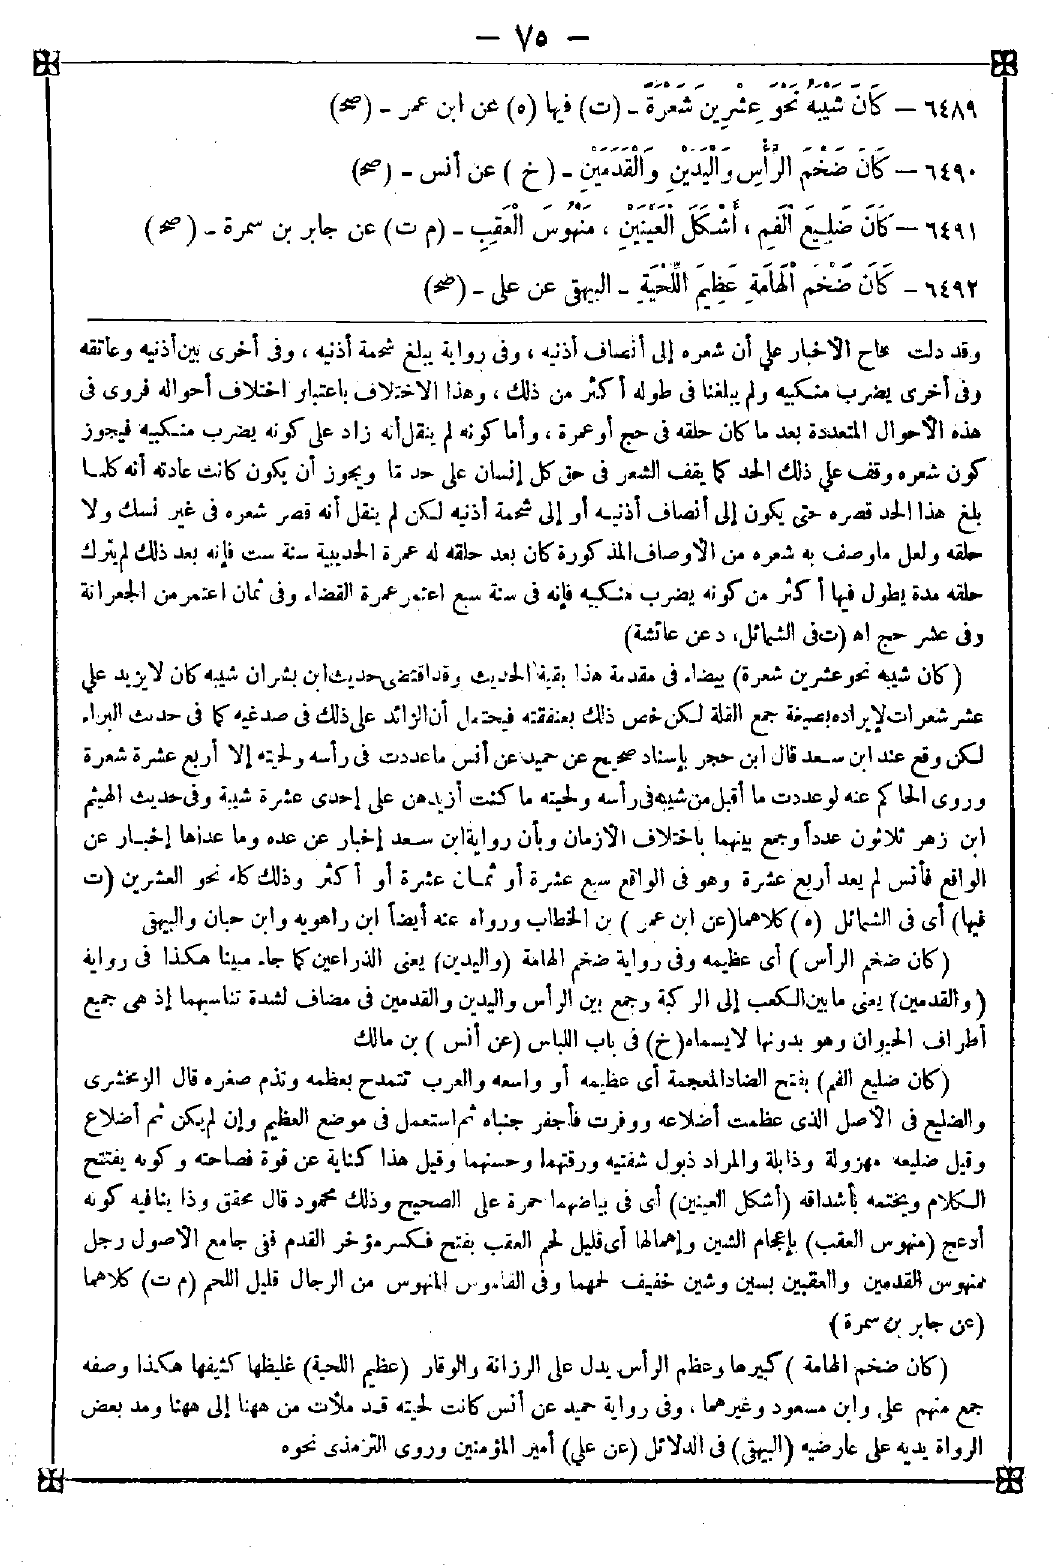 — ٧٥ —
٦٤٨٩ — كَانَ شَيْبُهُ نَحْوَ عِشْرِينَ شَعْرَةً - (ت) فيها (ه) عن ابن عمر - (صح)
٦٤٩٠ — كَانَ ضَخْمَ الرَّأْسِ وَالْيَدَيْنِ وَالْقَدَمَيْنِ - (خ) عن أنس - (صح)
٦٤٩١ — كَانَ ضَلِيعَ الْفَمِ ، أَشْكَلَ الْعَيْنَيْنِ ، مَنْهُوسَ الْعَقِبِ - (م ت) عن جابر بن سمرة - (صح)
٦٤٩٢ - كَانَ ضَخْمَ الْهَامَةِ عَظِيمَ اللِّحْيَةِ - البيهقى عن على - (صح)
وقد دلت صحاح الأخبار على أن شعره إلى أنصاف أذنيه ، وفى رواية يبلغ شحمة أذنيه ، وفى أخرى بين أذنيه وعاتقه
وفى أخرى يضرب منكبيه ولم يبلغنا فى طوله أكثر من ذلك ، وهذا الاختلاف باعتبار اختلاف أحواله فروى فى
هذه الأحوال المتعددة بعد ما كان حلقه فى حج أو عمرة ، وأما كونه لم ينقل أنه زاد على كونه يضرب منكبيه فيجوز
كون شعره وقف على ذلك الحد كما يقف الشعر فى حق كل إنسان على حد تا ويجوز أن يكون كانت عادته أنه كلما
بلغ هذا الحد قصره حتى يكون إلى أنصاف أذنيه أو إلى شحمة أذنيه لكن لم ينقل أنه قصر شعره فى غير نسك ولا
حلقه ولعل ماوصف به شعره من الأوصاف المذكورة كان بعد حلقه له عمرة الحديبية سنة ست فإنه بعد ذلك لم يترك
حلقه مدة يطول فيها أكثر من كونه يضرب منكبيه فإنه فى سنة سبع اعتمر عمرة القضاء وفى ثمان اعتمر من الجعرانة
وفى عشر حج اه (ت فى الشمائل، د عن عائشة)
(كان شيبه نحو عشرين شعرة) بيضاء فى مقدمة هذا بقية الحديث وقد اقتضى حديث ابن بشر ان شيبه كان لا يزيد على
عشر شعرات لإيراده بصيغة جمع القلة لكن خص ذلك بعنفقته فيحتمل أن الزائد على ذلك فى صدغيه كما فى حديث البراء
لكن وقع عند ابن سعد قال ابن حجر بإسناد صحيح عن حميد عن أنس ماعددت فى رأسه ولحيته إلا أربع عشرة شعرة
وروى الحاكم عنه لو عددت ما أقبل من شيبه فى رأسه ولحيته ما كنت أزيدهن على إحدى عشرة شيبة وفى حديث الهيثم
ابن زهر ثلاثون عدداً وجمع بينهما باختلاف الأزمان وبأن رواية ابن سعد إخبار عن عده وما عداها إخبار عن
الواقع فأنس لم يعد أربع عشرة وهو فى الواقع سبع عشرة أو ثمان عشرة أو أكثر وذلك كله نحو العشرين (ت
فيها) أى فى الشمائل (ه) كلاهما (عن ابن عمر) بن الخطاب ورواه عنه أيضاً ابن راهويه وابن حبان والبيهقى
(كان ضخم الرأس) أى عظيمه وفى رواية ضخم الهامة (واليدين) يعنى الذراعين كما جاء مبينا هكذا فى رواية
(والقدمين) يعنى ما بين الكعب إلى الركبة وجمع بين الرأس واليدين والقدمين فى مضاف لشدة تناسبهما إذ هى جميع
أطراف الحيوان وهو بدونها لا يسماه (خ) فى باب اللباس (عن أنس) بن مالك
(كان ضليع الفم) بفتح الضاد المعجمة أى عظيمه أو واسعه والعرب تتمدح بعظمه وتذم صغره قال الزمخشرى
والضليع فى الأصل الذى عظمت أضلاعه ووفرت فأجفر جنباه ثم استعمل فى موضع العظيم وإن لم يكن ثم أضلاع
وقيل ضليعه مهزولة وذابلة والمراد ذبول شفتيه ورقتهما وحسنهما وقيل هذا كناية عن قوة فصاحته وكونه يفتتح
الكلام ويختمه بأشداقه (أشكل العينين) أى فى بياضهما حمرة على الصحيح وذلك محمود قال محقق وذا ينافيه كونه
أدعج (منهوس العقب) بإعجام الشين وإهمالها أى قليل لحم العقب بفتح فكسر مؤخر القدم ففى جامع الأصول رجل
منهوس القدمين والعقبين بسين وشين خفيف لحمهما وفى القاموس المنهوس من الرجال قليل اللحم (م ت) كلاهما
(عن جابر بن سمرة)
(كان ضخم الهامة) كبيرها وعظم الرأس يدل على الرزانة والوقار (عظيم اللحية) غليظها كثيفها هكذا وصفه
جمع منهم على وابن مسعود وغيرهما ، وفى رواية حميد عن أنس كانت لحيته قد ملأت من ههنا إلى ههنا ومد بعض
الرواة يديه على عارضيه (البيهقى) فى الدلائل (عن على) أمير المؤمنين وروى الترمذى نحوه